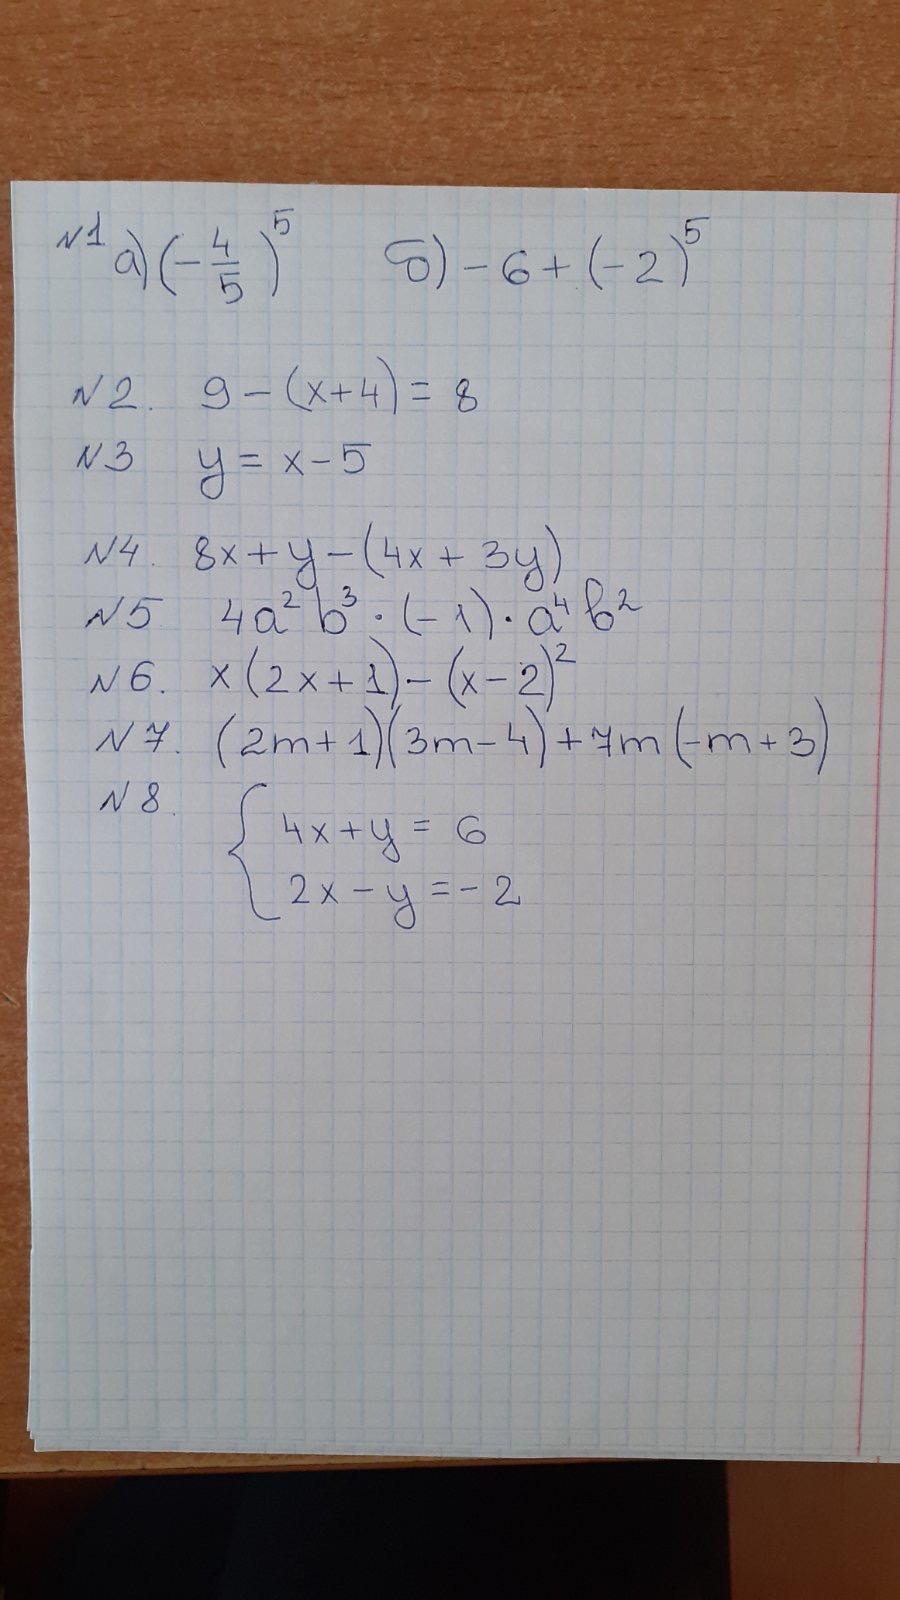 №1 а) (-4/5)^5 б) -6 + (-2)^5
№2. 9 - (x+4) = 8
№3 y = x - 5
№4. 8x + y - (4x + 3y)
№5 4a²b³ · (-1) · a⁴b²
№6. x(2x+1) - (x-2)²
№7. (2m+1)(3m-4) + 7m(-m+3)
№8. { 4x + y = 6
2x - y = -2